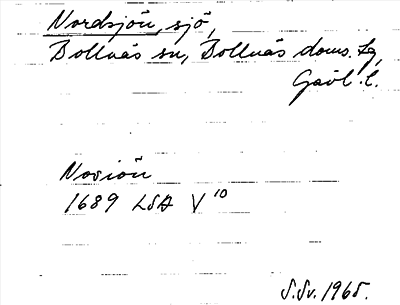 Nordsjön, sjö,
Bollnäs sn, Bollnäs doms. lg,
Gävl. l.
Nosiön
1689 LSA V 10
S.Sv. 1965.